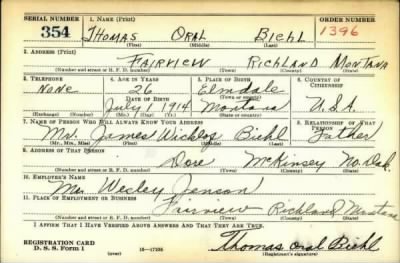 SERIAL NUMBER 1. NAME (Print) ORDER NUMBER
354 THOMAS ORAL BIEHL 1396
(First) (Middle) (Last)
2. ADDRESS (Print)
FAIRVIEW RICHLAND MONTANA
(Number and street or R. F. D. number) (Town) (County) (State)
3. TELEPHONE 4. AGE IN YEARS 5. PLACE OF BIRTH 6. COUNTRY OF CITIZENSHIP
None 26 Elmdale
DATE OF BIRTH
July 1 1914 Montana U.S.A.
(Exchange) (Number) (Mo.) (Day) (Yr.) (State or country)
7. NAME OF PERSON WHO WILL ALWAYS KNOW YOUR ADDRESS 8. RELATIONSHIP OF THAT PERSON
Mr. James Biehl Father
(Mr., Mrs., Miss) (First) (Middle) (Last)
9. ADDRESS OF THAT PERSON
Dore McKinsey No. Dak.
(Number and street or R. F. D. number) (Town) (County) (State)
10. EMPLOYER'S NAME
Wesley Jenson
11. PLACE OF EMPLOYMENT OR BUSINESS
Fairview Richland Montana
(Number and street or R. F. D. number) (Town) (County) (State)
I AFFIRM THAT I HAVE VERIFIED ABOVE ANSWERS AND THAT THEY ARE TRUE.
REGISTRATION CARD
D. S. S. Form 1 (over) 16—17105 Thomas Oral Biehl
(Registrant's signature)